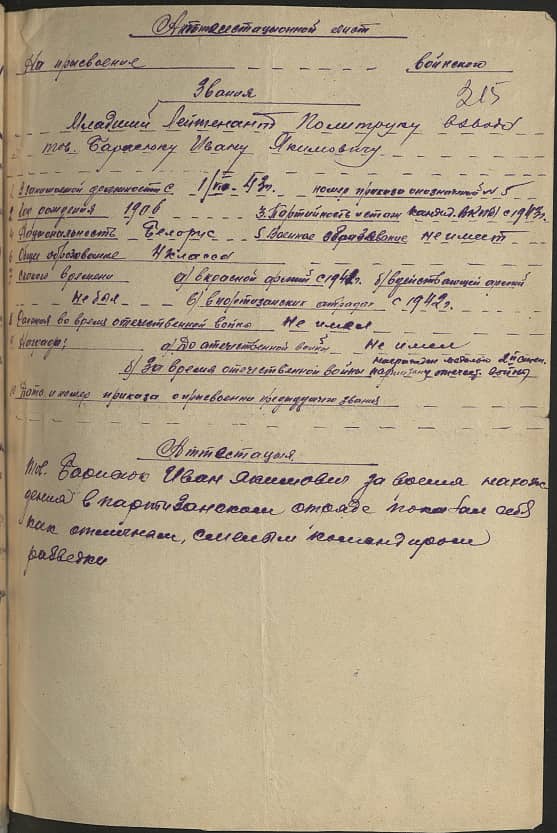 Аттестационной лист
На присвоение воинского
Звания
215
Младший Лейтенант Политруку взвода
тов. Ивану Якимовичу
1 Занимаемой должности с 1/III-43г. номер приказа о назначений № 5
2 Год рождения 1906 3. Партийность и стаж кандид. ВКП(б) с 1943г.
4 Национальность Белорус 5 Военное образование не имеет
6 Общее образование 4 класса
7 Скокого времени а) вкрасной армий с 1942г. б) вдействующей армий
не был в) впортизанских отрядах с 1942г.
8 во время отечественной войны Не имел
9 Награды: а) До отечественной войны Не имел
б) За время отечественной войны награжден медалью партизану отечест. войны
10 Дата и номер приказа о присвоении предыдущего звания
Аттестация
Тов. Иван Якимович за время нахож
дения в партизанском отряде показал себя
как отличным, смелым командиром
разведки